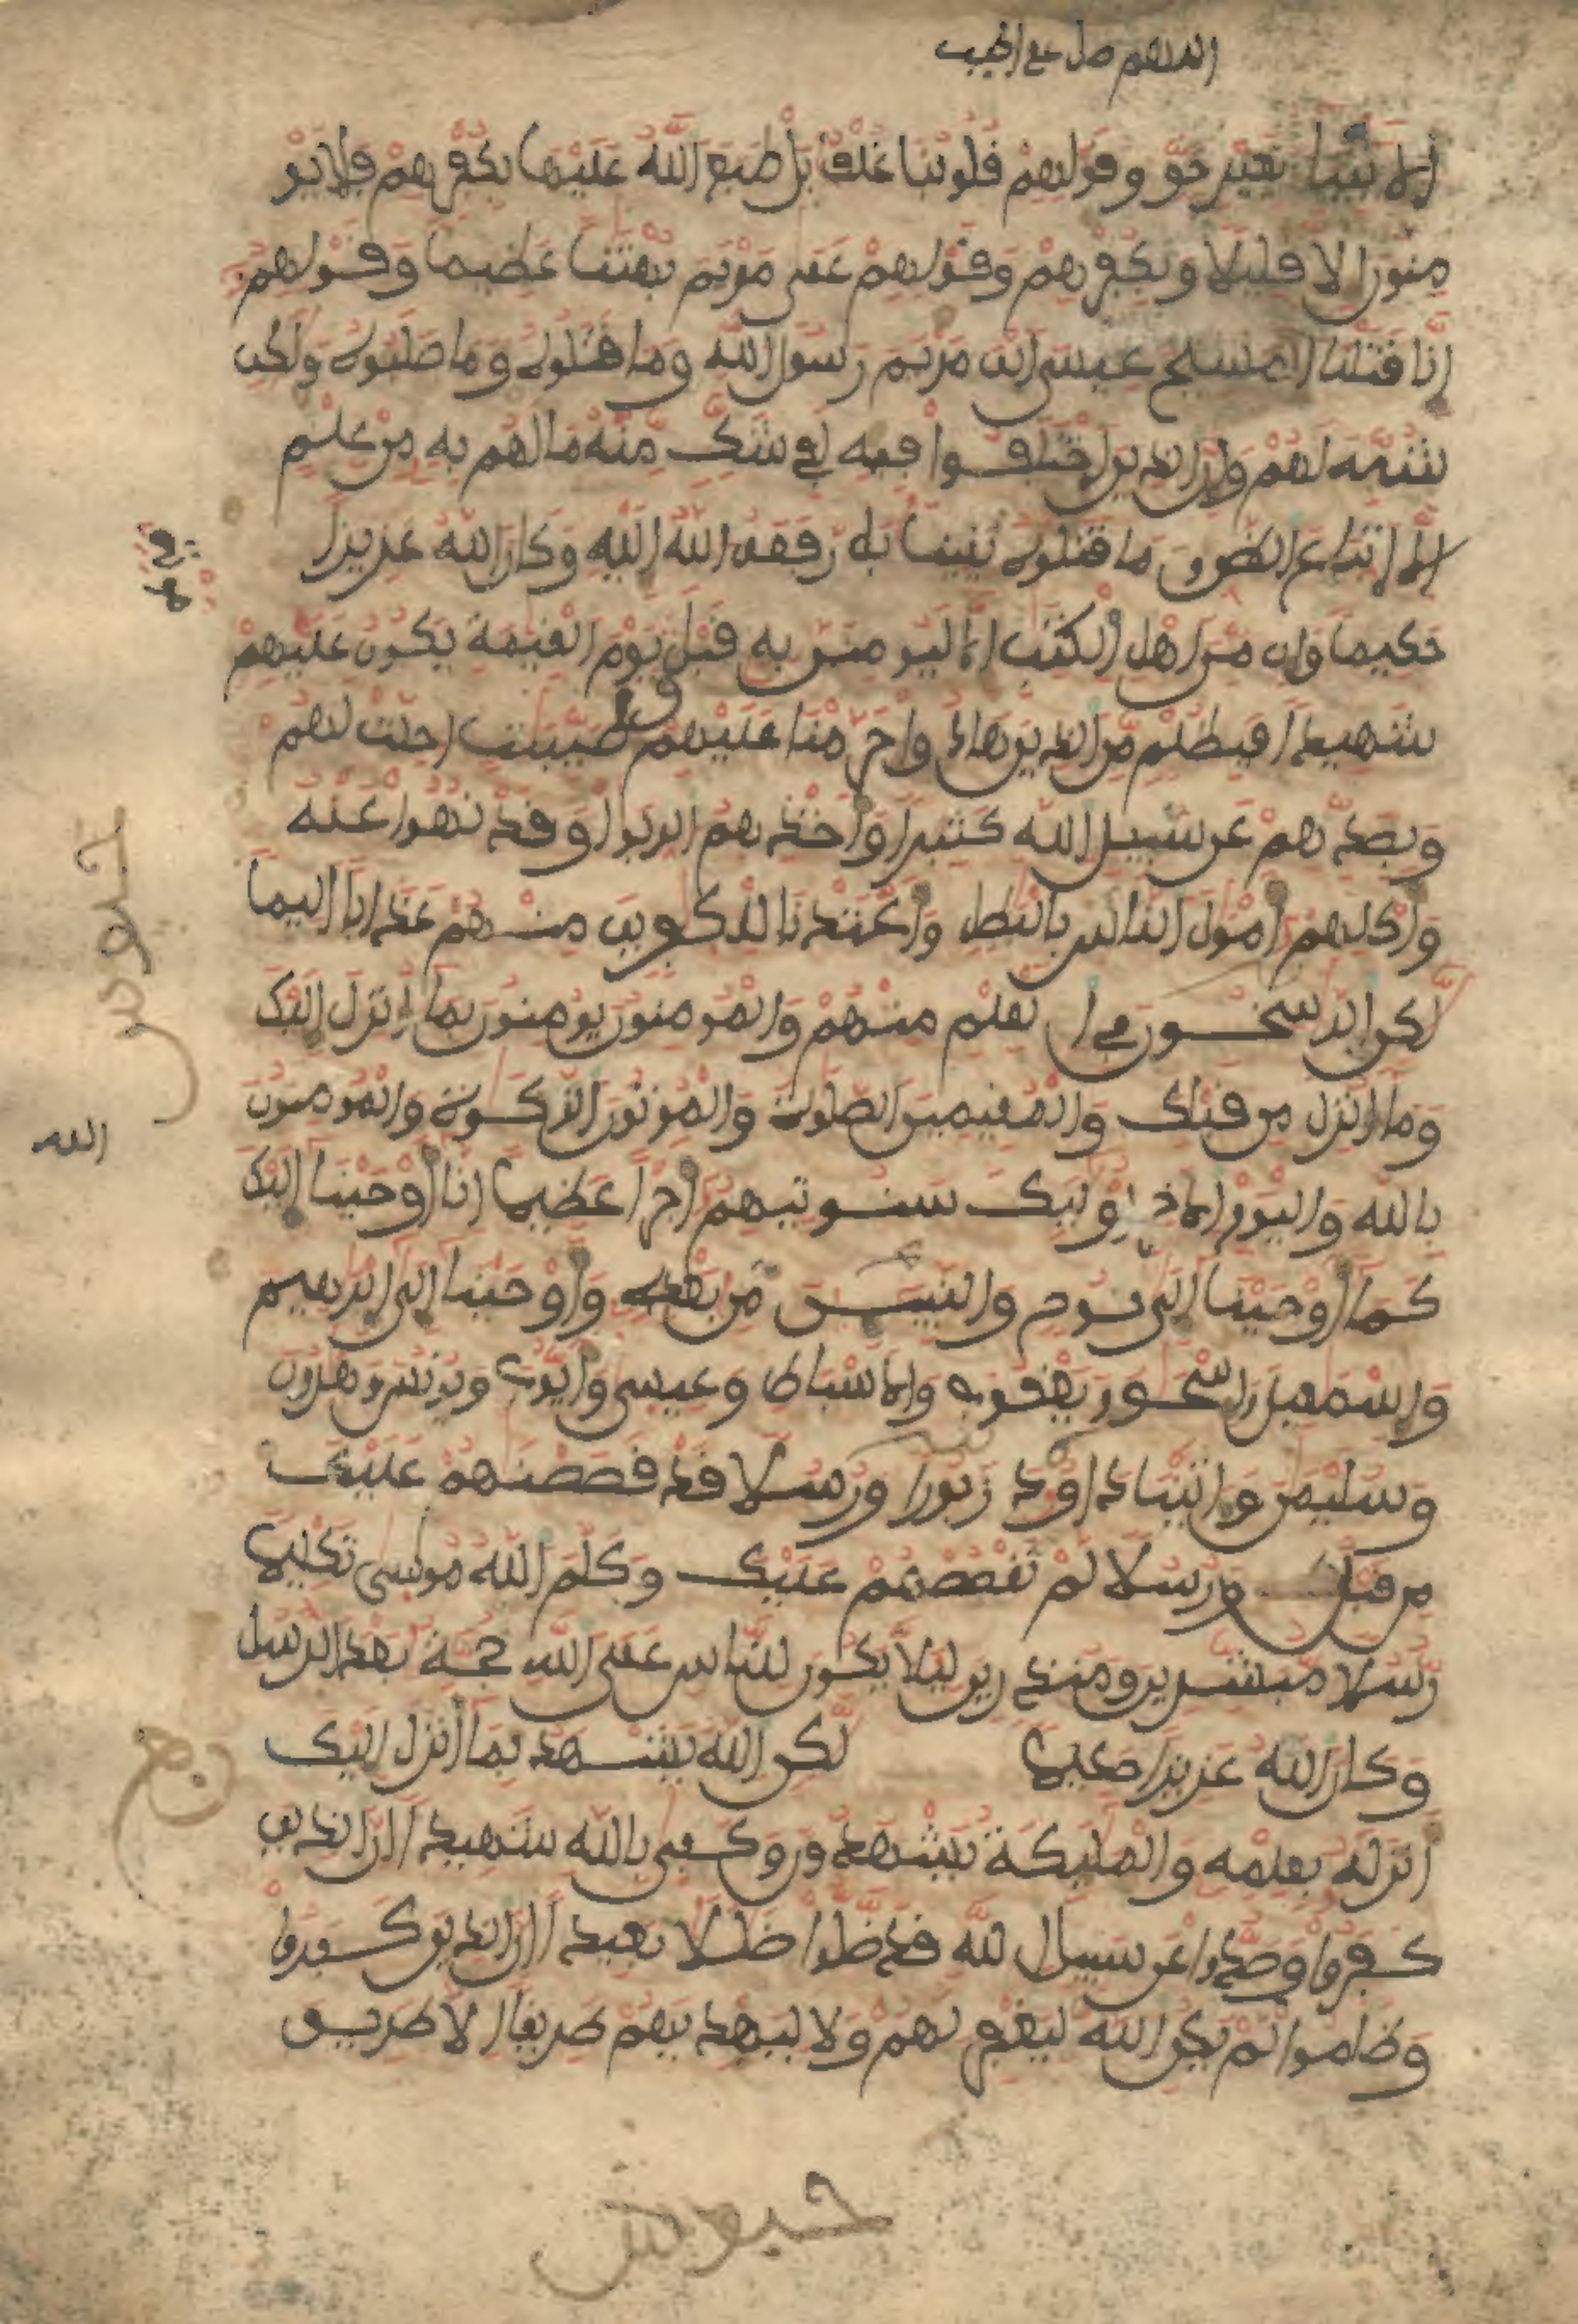 اللهم صل على الحبيب
الانبيا بغير حق وقولهم قلوبنا غلف بل طبع الله عليها بكفرهم فلا يو
منون الا قليلا وبكفرهم وقولهم على مريم بهتنا عظيما وقولهم
انا قتلنا المسيح عيسى ابن مريم رسول الله وما قتلوه وما صلبوه ولكن
شبه لهم وان الذين اختلفوا فيه لفي شك منه ما لهم به من علم
الا اتباع الظن وما قتلوه يقينا بل رفعه الله اليه وكان الله عزيزا
حكيما وان من اهل الكتب الا ليومنن به قبل يوم القيمة يكون عليهم
شهيدا فبظلم من الذين هادوا حرمنا عليهم طيبت احلت لهم
وبصدهم عن سبيل الله كثيرا واخذهم الربوا وقد نهوا عنه
واكلهم امول الناس بالبطل واعتدنا للكفرين منهم عذابا اليما
لكن الرسخون في العلم منهم والمومنون يومنون بما انزل اليك
وما انزل من قبلك والمقيمين الصلوة والموتون الزكوة والمومنون
بالله واليوم الاخر اوليك سنوتيهم اجرا عظيما انا اوحينا اليك
كما اوحينا الى نوح والنبيين من بعده واوحينا الى ابرهيم
واسمعيل واسحق ويعقوب والاسباط وعيسى وايوب ويونس وهرون
وسليمن واتينا داود زبورا ورسلا قد قصصنهم عليك
من قبل ورسلا لم نقصصهم عليك وكلم الله موسى تكليما
رسلا مبشرين ومنذرين ليلا يكون للناس على الله حجة بعد الرسل
وكان الله عزيزا حكيما لكن الله يشهد بما انزل اليك
انزله بعلمه والمليكة يشهدون وكفى بالله شهيدا ان الذين
كفروا وصدوا عن سبيل الله قد ضلوا ضللا بعيدا ان الذين كفروا
وظلموا لم يكن الله ليغفر لهم ولا ليهديهم طريقا الا طريق
الله
ربع